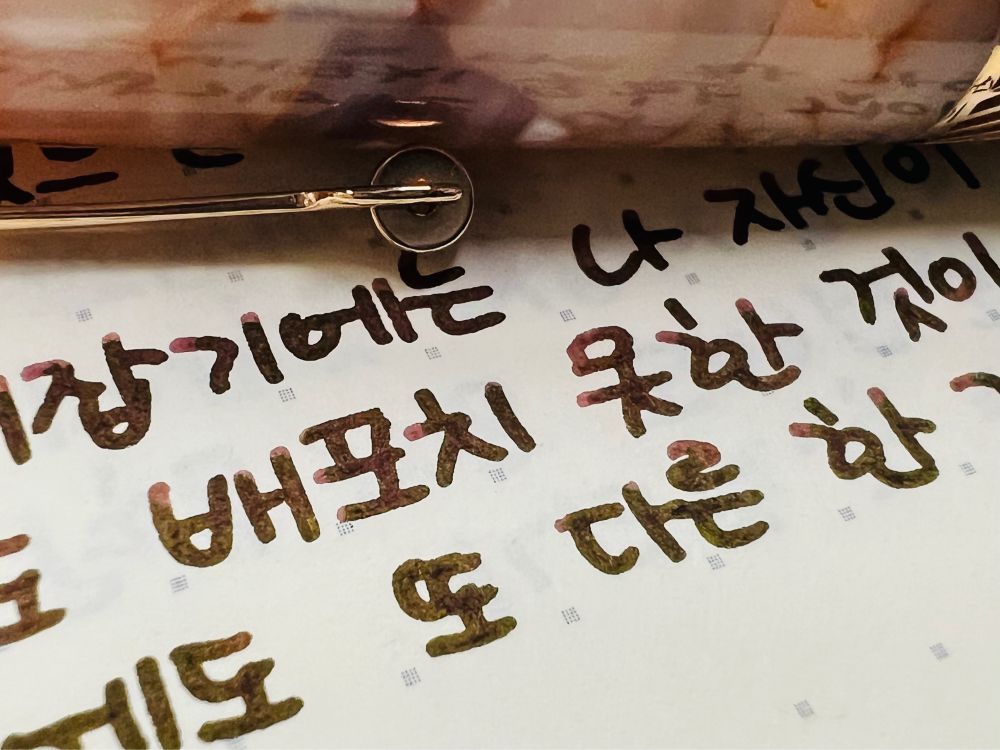 장기에는 나 자신이
배포치 못한 것이
도 또 다른 한